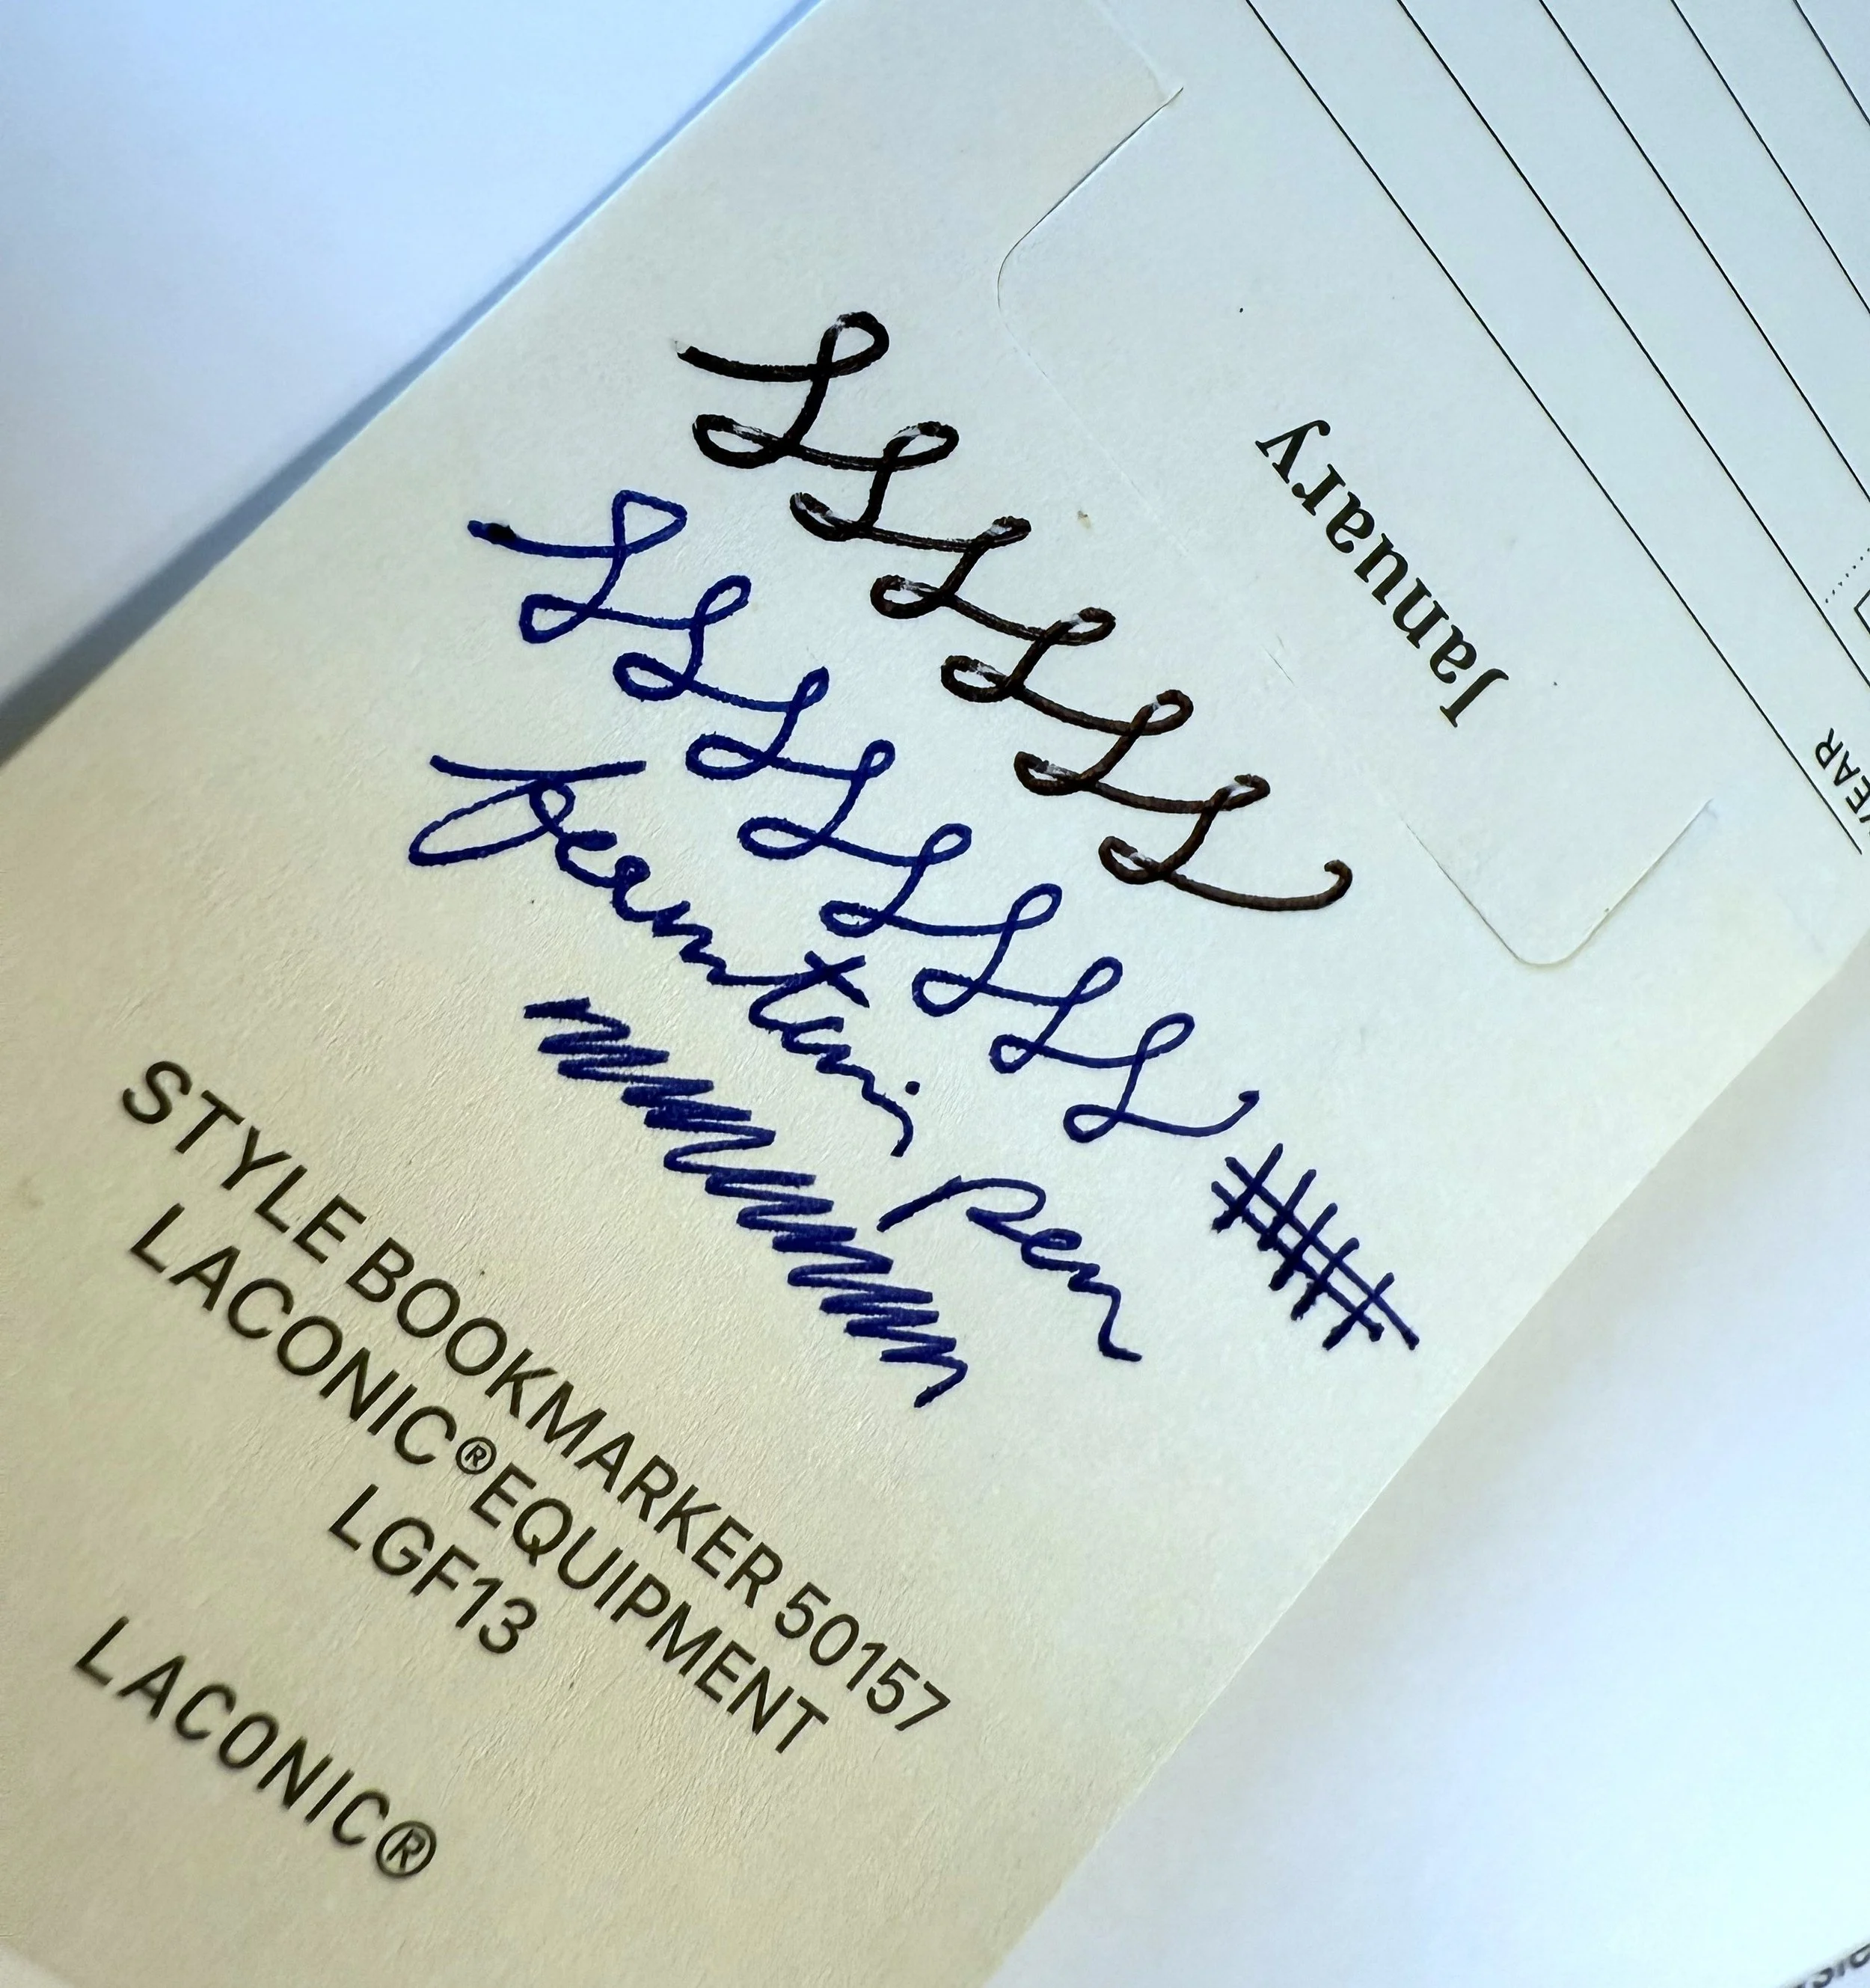 January
YEAR
LLLLLL
LLLLLLLL
Fountain Pen
STYLE BOOKMARKER 50157
LACONIC®EQUIPMENT
LGF13
LACONIC®